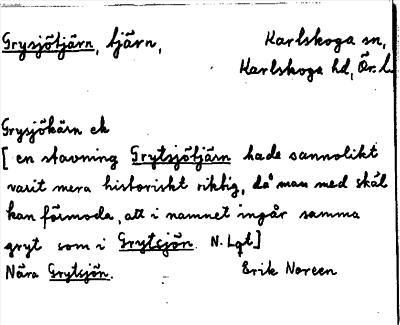 Grysjötjärn, tjärn, Karlskoga sn,
Karlskoga hd, Ör. l.
Grysjökärn ek
[en stavning Grytsjötjärn hade sannolikt
varit mera historiskt riktig, då man med skäl
kan förmoda, att i namnet ingår samma
gryt som i Grytsjön. N. Lqt]
Nära Grytsjön. Erik Noreen